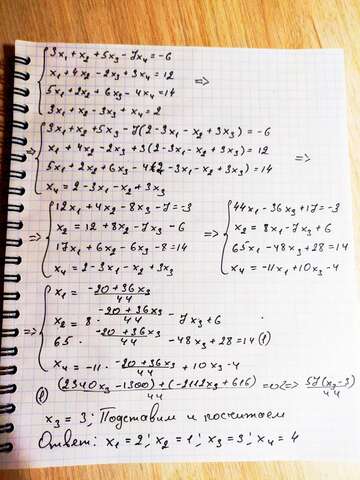 3x₁ + x₂ + 5x₃ - 7x₄ = -6
x₁ + 4x₂ - 2x₃ + 3x₄ = 12 =>
5x₁ + 2x₂ + 6x₃ - 4x₄ = 14
3x₁ + x₂ - 3x₃ + x₄ = 2
3x₁ + x₂ + 5x₃ - 7(2 - 3x₁ - x₂ + 3x₃) = -6
x₁ + 4x₂ - 2x₃ + 3(2 - 3x₁ - x₂ + 3x₃) = 12 =>
=> 5x₁ + 2x₂ + 6x₃ - 4(2 - 3x₁ - x₂ + 3x₃) = 14
x₄ = 2 - 3x₁ - x₂ + 3x₃
12x₁ + 4x₂ - 8x₃ - 7 = -3 44x₁ - 36x₃ + 17 = -3
=> x₂ = 12 + 8x₁ - 7x₃ - 6 => x₂ = 8x₁ - 7x₃ + 6
17x₁ + 6x₂ - 6x₃ - 8 = 14 65x₁ - 48x₃ + 28 = 14
x₄ = 2 - 3x₁ - x₂ + 3x₃ x₄ = -11x₁ + 10x₃ - 4
=> x₁ = (-20 + 36x₃)/44
x₂ = 8 · (-20 + 36x₃)/44 - 7x₃ + 6
65 · (-20 + 36x₃)/44 - 48x₃ + 28 = 14 (1)
x₄ = -11 · (-20 + 36x₃)/44 + 10x₃ - 4
(1) ((2340x₃ - 1300) + (-2112x₃ + 616))/44 = 0 <=> 57(x₃ - 3)/44
x₃ = 3; Подставим и посчитаем
Ответ: x₁ = 2; x₂ = 1; x₃ = 3; x₄ = 4